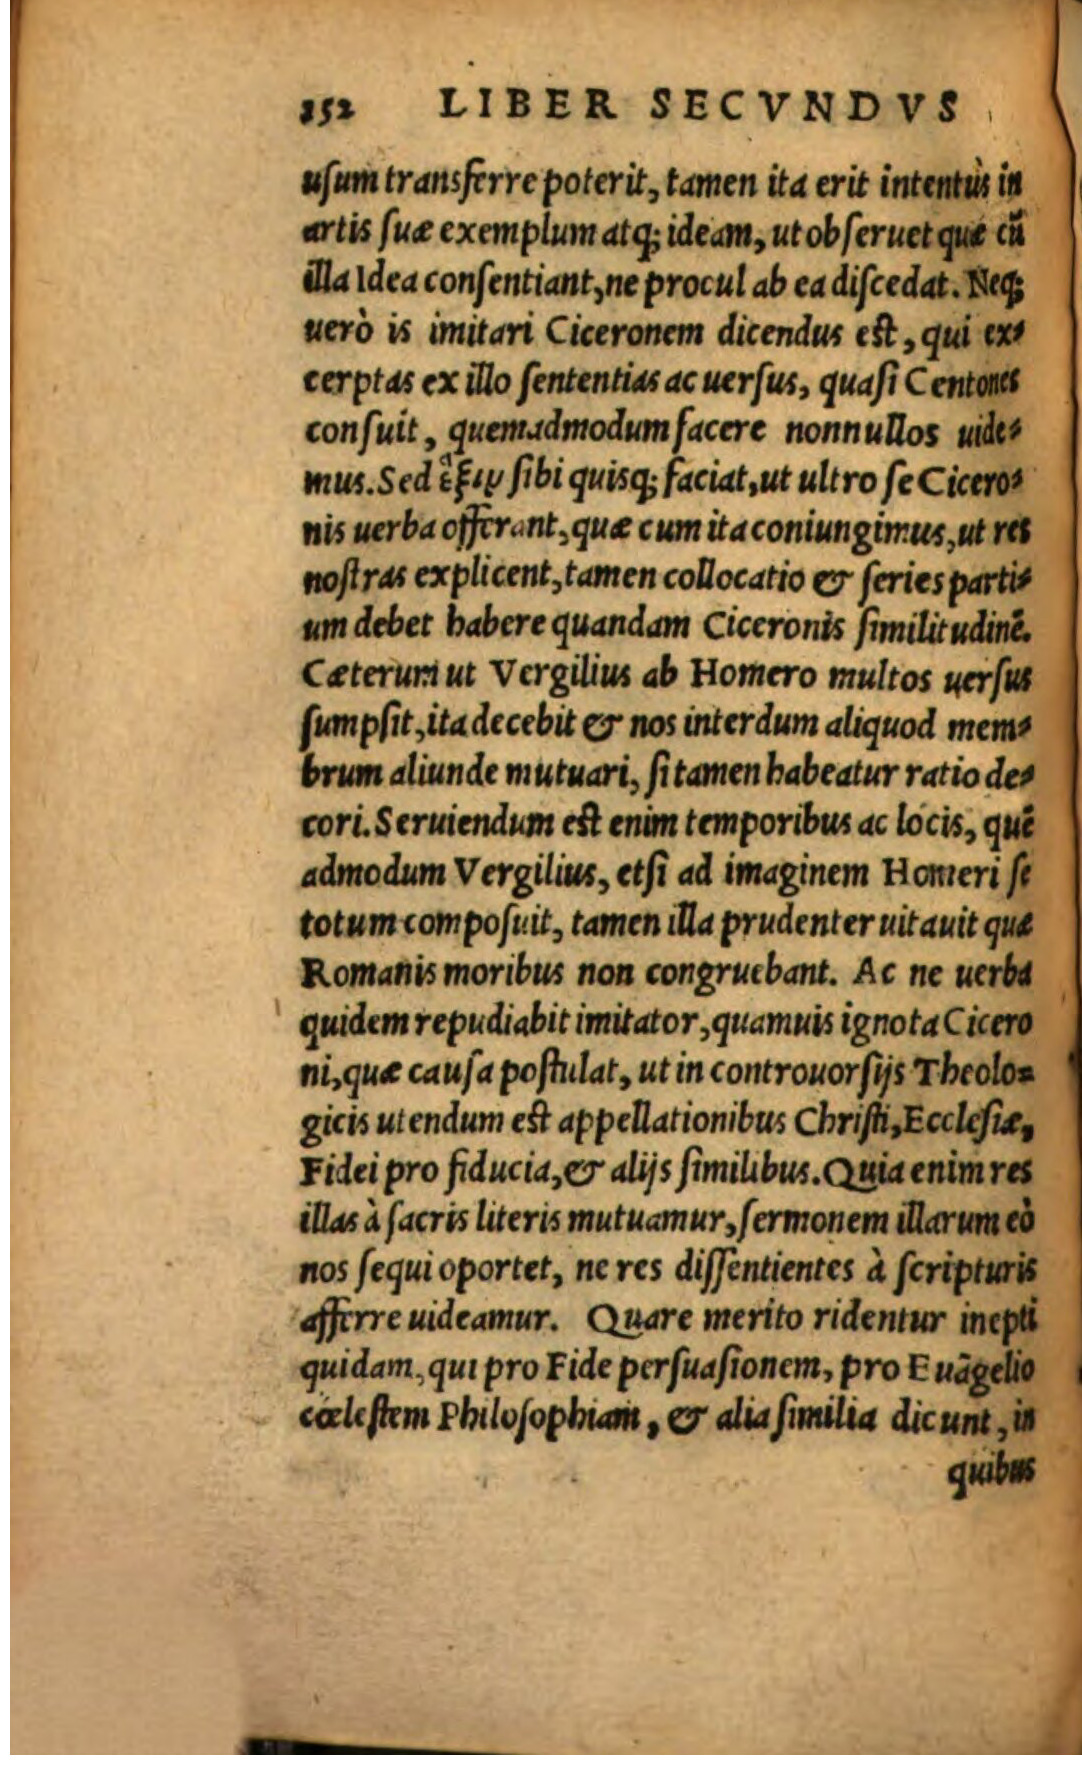 152 LIBER SECVNDVS
uſum transferre poterit, tamen ita erit intentùs in
artis ſuæ exemplum atq; ideam, ut obſeruet quæ cũ
illa Idea conſentiant, ne procul ab ea diſcedat. Neq;
uerò is imitari Ciceronem dicendus eſt, qui ex-
cerptas ex illo ſententias ac uerſus, quaſi Centones
conſuit, quemadmodum facere nonnullos uide-
mus. Sed ἕξιν ſibi quisq; faciat, ut ultro ſe Cicero-
nis uerba offerant, quæ cum ita coniungimus, ut res
noſtras explicent, tamen collocatio & ſeries parti-
um debet habere quandam Ciceronis ſimilitudinẽ.
Cæterum ut Vergilius ab Homero multos uerſus
ſumpſit, ita decebit & nos interdum aliquod mem-
brum aliunde mutuari, ſi tamen habeatur ratio de-
cori. Seruiendum eſt enim temporibus ac locis, quẽ
admodum Vergilius, etſi ad imaginem Homeri ſe
totum compoſuit, tamen illa prudenter uitauit quæ
Romanis moribus non congruebant. Ac ne uerba
quidem repudiabit imitator, quamuis ignota Cicero
ni, quæ cauſa poſtulat, ut in controuorſijs Theolo-
gicis utendum eſt appellationibus Chriſti, Eccleſiæ,
Fidei pro fiducia, & alijs ſimilibus. Quia enim res
illas à ſacris literis mutuamur, ſermonem illarum eò
nos ſequi oportet, ne res diſſentientes à ſcripturis
afferre uideamur. Quare merito ridentur inepti
quidam, qui pro Fide perſuaſionem, pro Euãgelio
cœleſtem Philoſophiam, & alia ſimilia dicunt, in
quibus